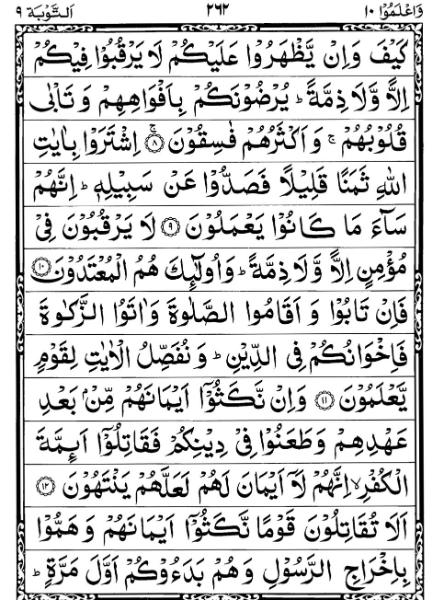 وَاعْلَمُوْٓا ١٠ ٢٦٢ اَلتَّوْبَة ٩
كَيْفَ وَاِنْ يَّظْهَرُوْا عَلَيْكُمْ لَا يَرْقُبُوْا فِيْكُمْ
اِلًّا وَّلَا ذِمَّةً ؕ يُرْضُوْنَكُمْ بِاَفْوَاهِهِمْ وَتَاْبٰى
قُلُوْبُهُمْ ۚ وَاَكْثَرُهُمْ فٰسِقُوْنَ ۚ ﴿٨﴾ اِشْتَرَوْا بِاٰيٰتِ
اللّٰهِ ثَمَنًا قَلِيْلًا فَصَدُّوْا عَنْ سَبِيْلِهٖ ؕ اِنَّهُمْ
سَآءَ مَا كَانُوْا يَعْمَلُوْنَ ﴿٩﴾ لَا يَرْقُبُوْنَ فِيْ
مُؤْمِنٍ اِلًّا وَّلَا ذِمَّةً ؕ وَاُولٰٓئِكَ هُمُ الْمُعْتَدُوْنَ ﴿١٠﴾
فَاِنْ تَابُوْا وَاَقَامُوا الصَّلٰوةَ وَاٰتَوُا الزَّكٰوةَ
فَاِخْوَانُكُمْ فِي الدِّيْنِ ؕ وَنُفَصِّلُ الْاٰيٰتِ لِقَوْمٍ
يَّعْلَمُوْنَ ﴿١١﴾ وَاِنْ نَّكَثُوْٓا اَيْمَانَهُمْ مِّنْۢ بَعْدِ
عَهْدِهِمْ وَطَعَنُوْا فِيْ دِيْنِكُمْ فَقَاتِلُوْٓا اَئِمَّةَ
الْكُفْرِ ۙ اِنَّهُمْ لَآ اَيْمَانَ لَهُمْ لَعَلَّهُمْ يَنْتَهُوْنَ ﴿١٢﴾
اَلَا تُقَاتِلُوْنَ قَوْمًا نَّكَثُوْٓا اَيْمَانَهُمْ وَهَمُّوْا
بِاِخْرَاجِ الرَّسُوْلِ وَهُمْ بَدَءُوْكُمْ اَوَّلَ مَرَّةٍ ؕ